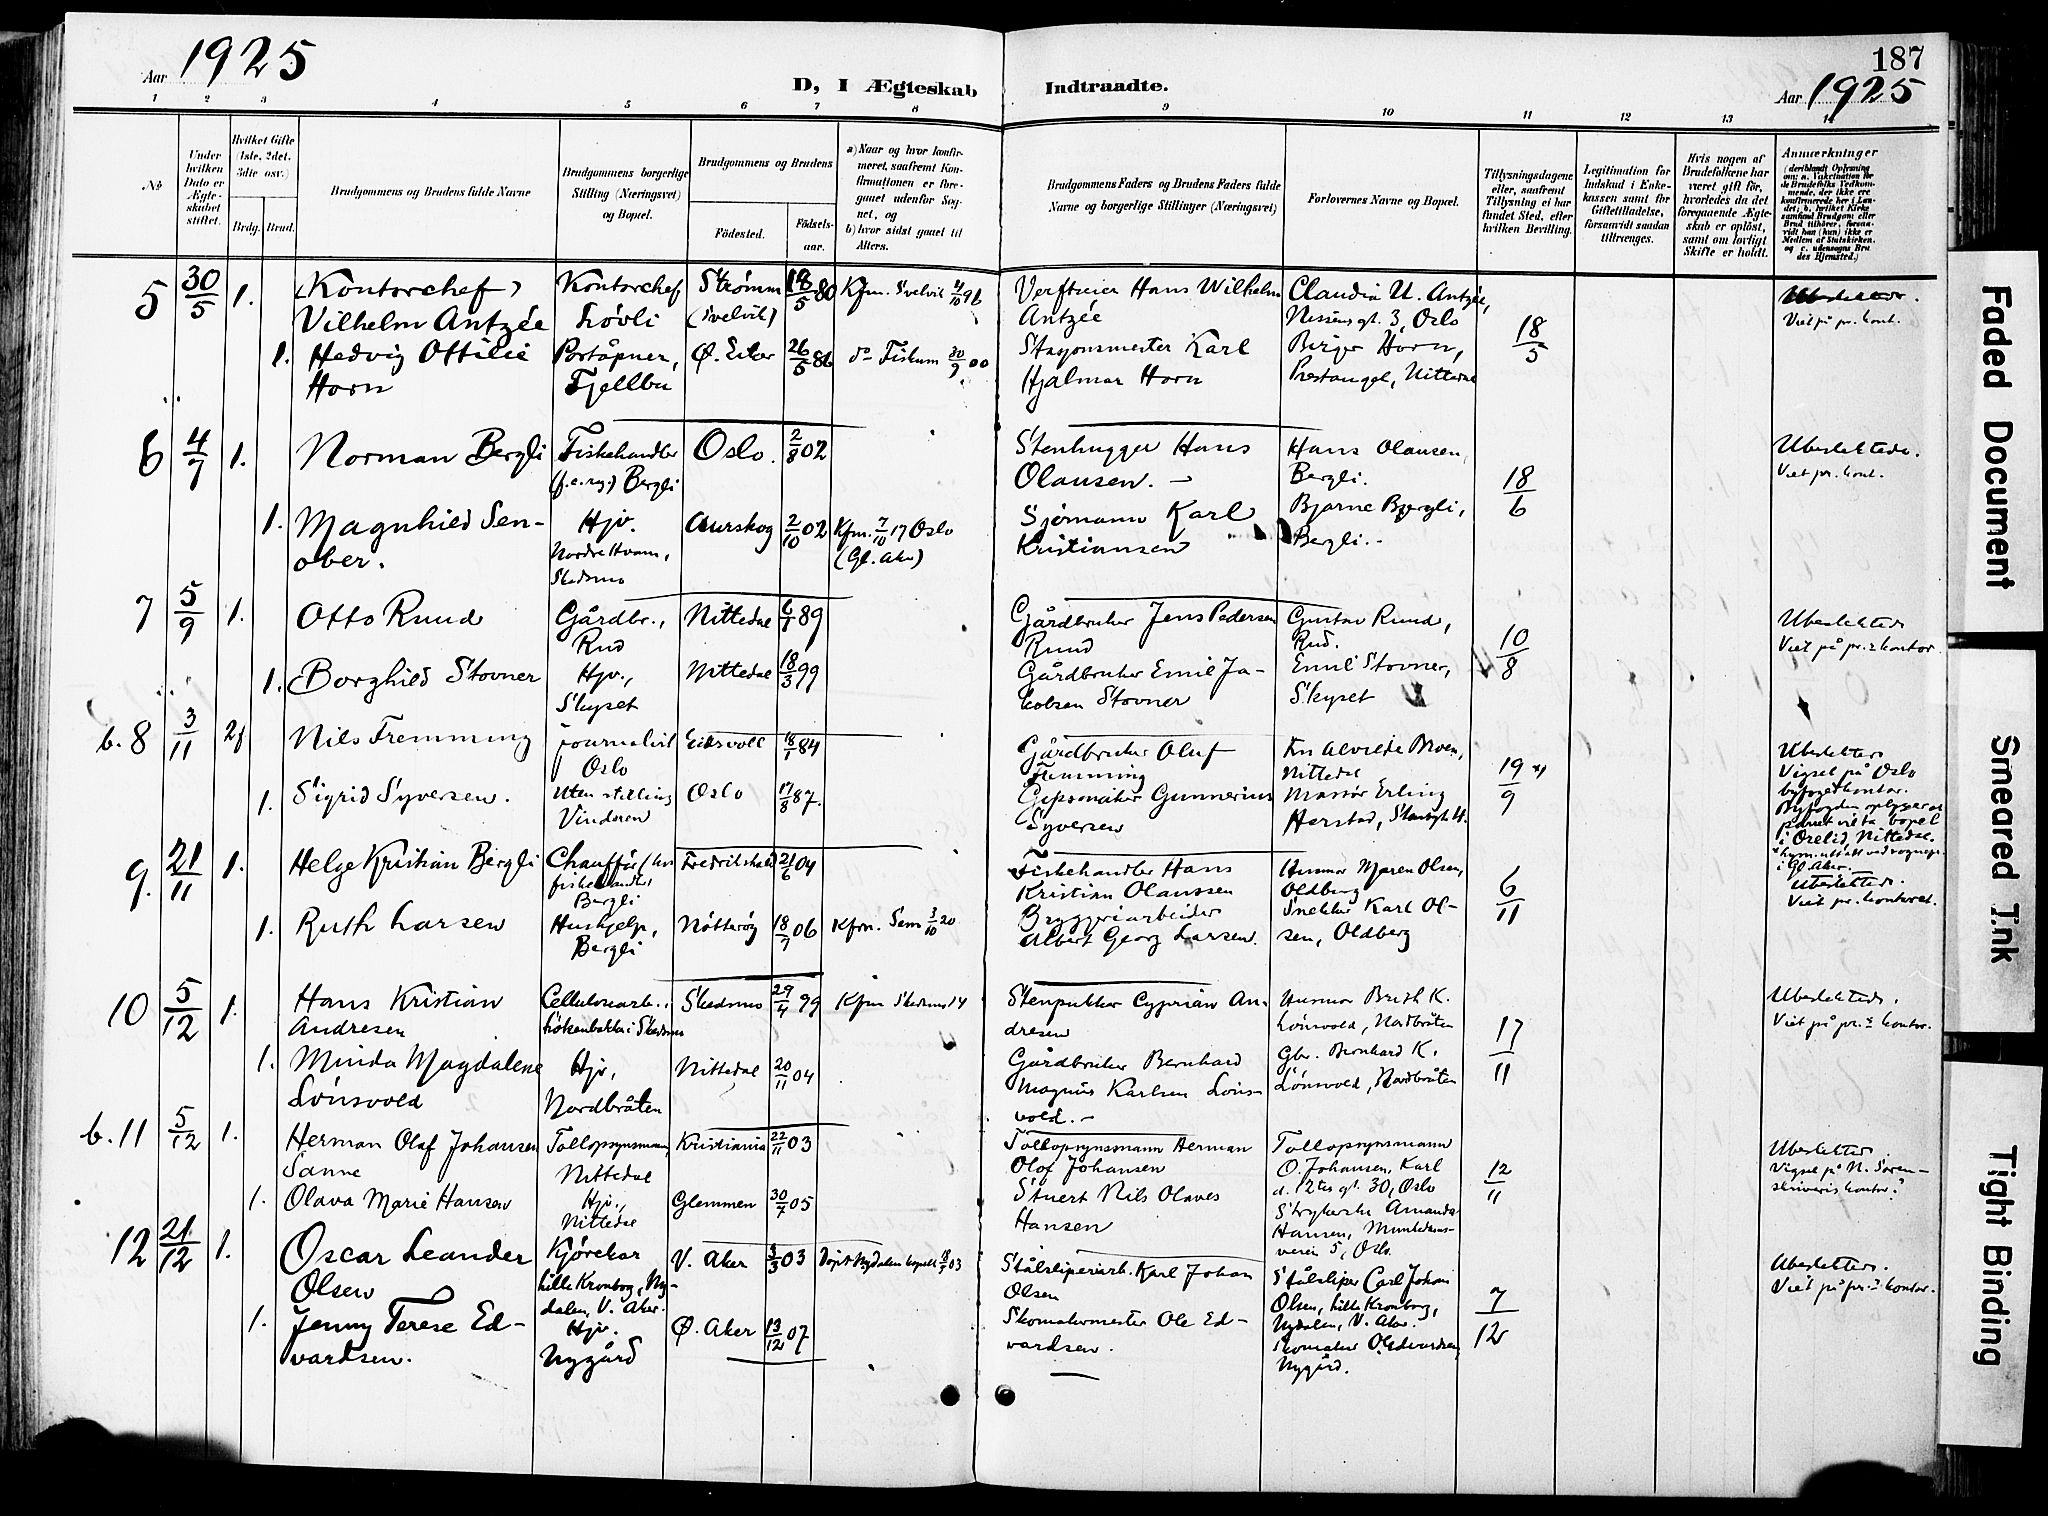 187
Aar 1925
D, I Ægteskab Indtraadte.
Aar 1925
1 2 3 4 5 6 7 8 9 10 11 12 13 14
№
Under hvilken Dato er Ægteskabet stiftet.
Hvilket Gifte (1ste, 2det, 3die osv.)
Brdg. Brud.
Brudgommens og Brudens fulde Navne
Brudgommens borgerlige Stilling (Næringsvei) og Bopæl.
Brudgommens og Brudens
Fødested.
Fødselsaar.
a) Naar og hvor konfirmeret, saafremt Konfirmationen er foregaaet udenfor Sognet, og
b) hvor sidst gaaet til Alters.
Brudgommens Faders og Brudens Faders fulde Navne og borgerlige Stillinger (Næringsvei)
Forlovernes Navne og Bopæl.
Tillysningsdagene eller, saafremt Tillysning ei har fundet Sted, efter hvilken Bevilling.
Legitimation for Indskud i Enkekassen samt for Giftetilladelse, forsaavidt saadan tiltrænges.
Hvis nogen af Brudefolkene har været gift før, hvorledes da det foregaaende Ægteskab er opløst, samt om lovligt Skifte er holdt.
Anmærkninger
(deriblandt Oplysning om: a. Vakcination for de Brudefolks Vedkommende, der ikke ere konfirmerede her i Landet; b. hvilket Kirkesamfund Brudgom eller Brud tilhører, forsaavidt han (hun) ikke er Medlem af Statskirken, og c. udensogns Brudes Hjemsted.)
5 30/5 1. (Kontorchef) Kontorchef Strømm 18/5 80 Kfm. Svelvik 4/10 96 Verfteier Hans Wilhelm Claudia U. Antzée,
Vilhelm Antzée Løvli (Svelvik) Antzée Nissens gt. 3, Oslo 18/5 Viet på pr. kont.
1. Hedvig Ottilie Poståpner, Ø. Eiker 26/5 86 do Fiskum 30/9 00 Stasjonsmester Karl Birger Horn,
Horn Fjellbu Hjalmar Horn Prestangel, Nittedal
6 4/7 1. Norman Bergli Fiskehandler Oslo. 2/8 02 Stenhugger Hans Hans Olausen, Ubeslektede.
Bergli Olausen. Bergli. 18/6 Viet pr. kont.
1. Magnhild Sen- Hjv. Aurskog 2/10 02 Kfm. 7/10 17 Oslo Sjømann Karl Bjarne Bergli,
ober. Nordre Hvam, (Gl. Aker) Kristiansen Bergli.
Skedsmo
7 5/9 1. Otto Ruud Gårdbr., Nittedal 6/1 89 Gårdbruker Jens Pedersen Gustav Ruud, Ubeslektede
Rud Ruud Rud. 10/8 Viet på pr.s kontor.
1. Borghild Stovner Hjv., Nittedal 18/3 99 Gårdbruker Emil Ja- Emil Stovner,
Skyset kobsen Stovner Skyset
b. 8 3/11 2g Nils Fremming journalist Eidsvoll 18/1 84 Gårdbruker Oluf Fru Alvilde Moen, Ubeslektede
Oslo Fremming Nittedal 19/9 Vigsel på Oslo
1. Sigrid Syversen. Uten stilling Oslo 17/8 87. Gipsmaker Gunnerius Massør Erling byfogdkontor.
Vinderen Syversen Herstad,
i Gl. Aker.
9. 21/11 1. Helge Kristian Bergli Chauffør Fredrikshald 21/6 04 Fiskehandler Hans Husmor Maren Olsen, 6/11 Ubeslektede.
Bergli Kristian Olaussen Oldberg Viet pr. kontoret.
1. Ruth Larsen Hushjelp, Nøtterøy 18/7 06 Kfm. Sem 3/10 20 Bryggeriarbeider Snekker Karl Ol-
Bergli Albert Georg Larsen. sen, Oldberg
10 5/12 1. Hans Kristian Cellulosearb., Skedsmo 29/4 99 Kfm Skedsmo 14 Stenpukker Cyprian An- Husmor Berth K. Ubeslektede.
Andresen dresen Lönsvold, Nordbråten 17/11 Viet på pr.s kontor.
1. Minda Magdalene Hjv, Nittedal 20/11 04 Gårdbruker Bernhard Gbr. Bernhard K.
Lönsvold Nordbråten Magnus Karlsen Löns- Lönsvold, Nordbråten
vold.
b. 11 5/12 1. Herman Olaf Johansen Tollopsynsmann, Kristiania 22/11 03 Tollopsynsmann Herman Tollopsynsmann Ubeslektede.
Sanne Nittedal Olaf Johansen O. Johansen, Karl 12/11 Vigsel på N. Soren-
1. Olava Marie Hansen Hjv., Glemmen 30/7 05 Stuert Nils Olaves d. 12tes gt. 30, Oslo skriveris kontor.
Nittedal Hansen Strykerske Amanda
Hansen, Munkedams-
veien 5, Oslo
12 21/12 1. Oscar Leander Kjørekar V. Aker 3/3 03 Døpt Nydalen kapell 18/7 03 Stålsliperiarb. Karl Johan Stålsliper Carl Johan Ubeslektede.
Olsen Lille Kronborg, Ny- Olsen Olsen, Lille Kronborg, 7/12 Viet på pr.s kontor.
dalen, V. Aker. Nydalen, V. Aker.
1. Jenny Terese Ed- Hjv. Ø. Aker 13/12 07 Skomakermester Ole Ed- Skomaker O. Edvardsen,
vardsen. Nygård vardsen. Nygård.
Faded Document
Smeared Ink
Tight Binding